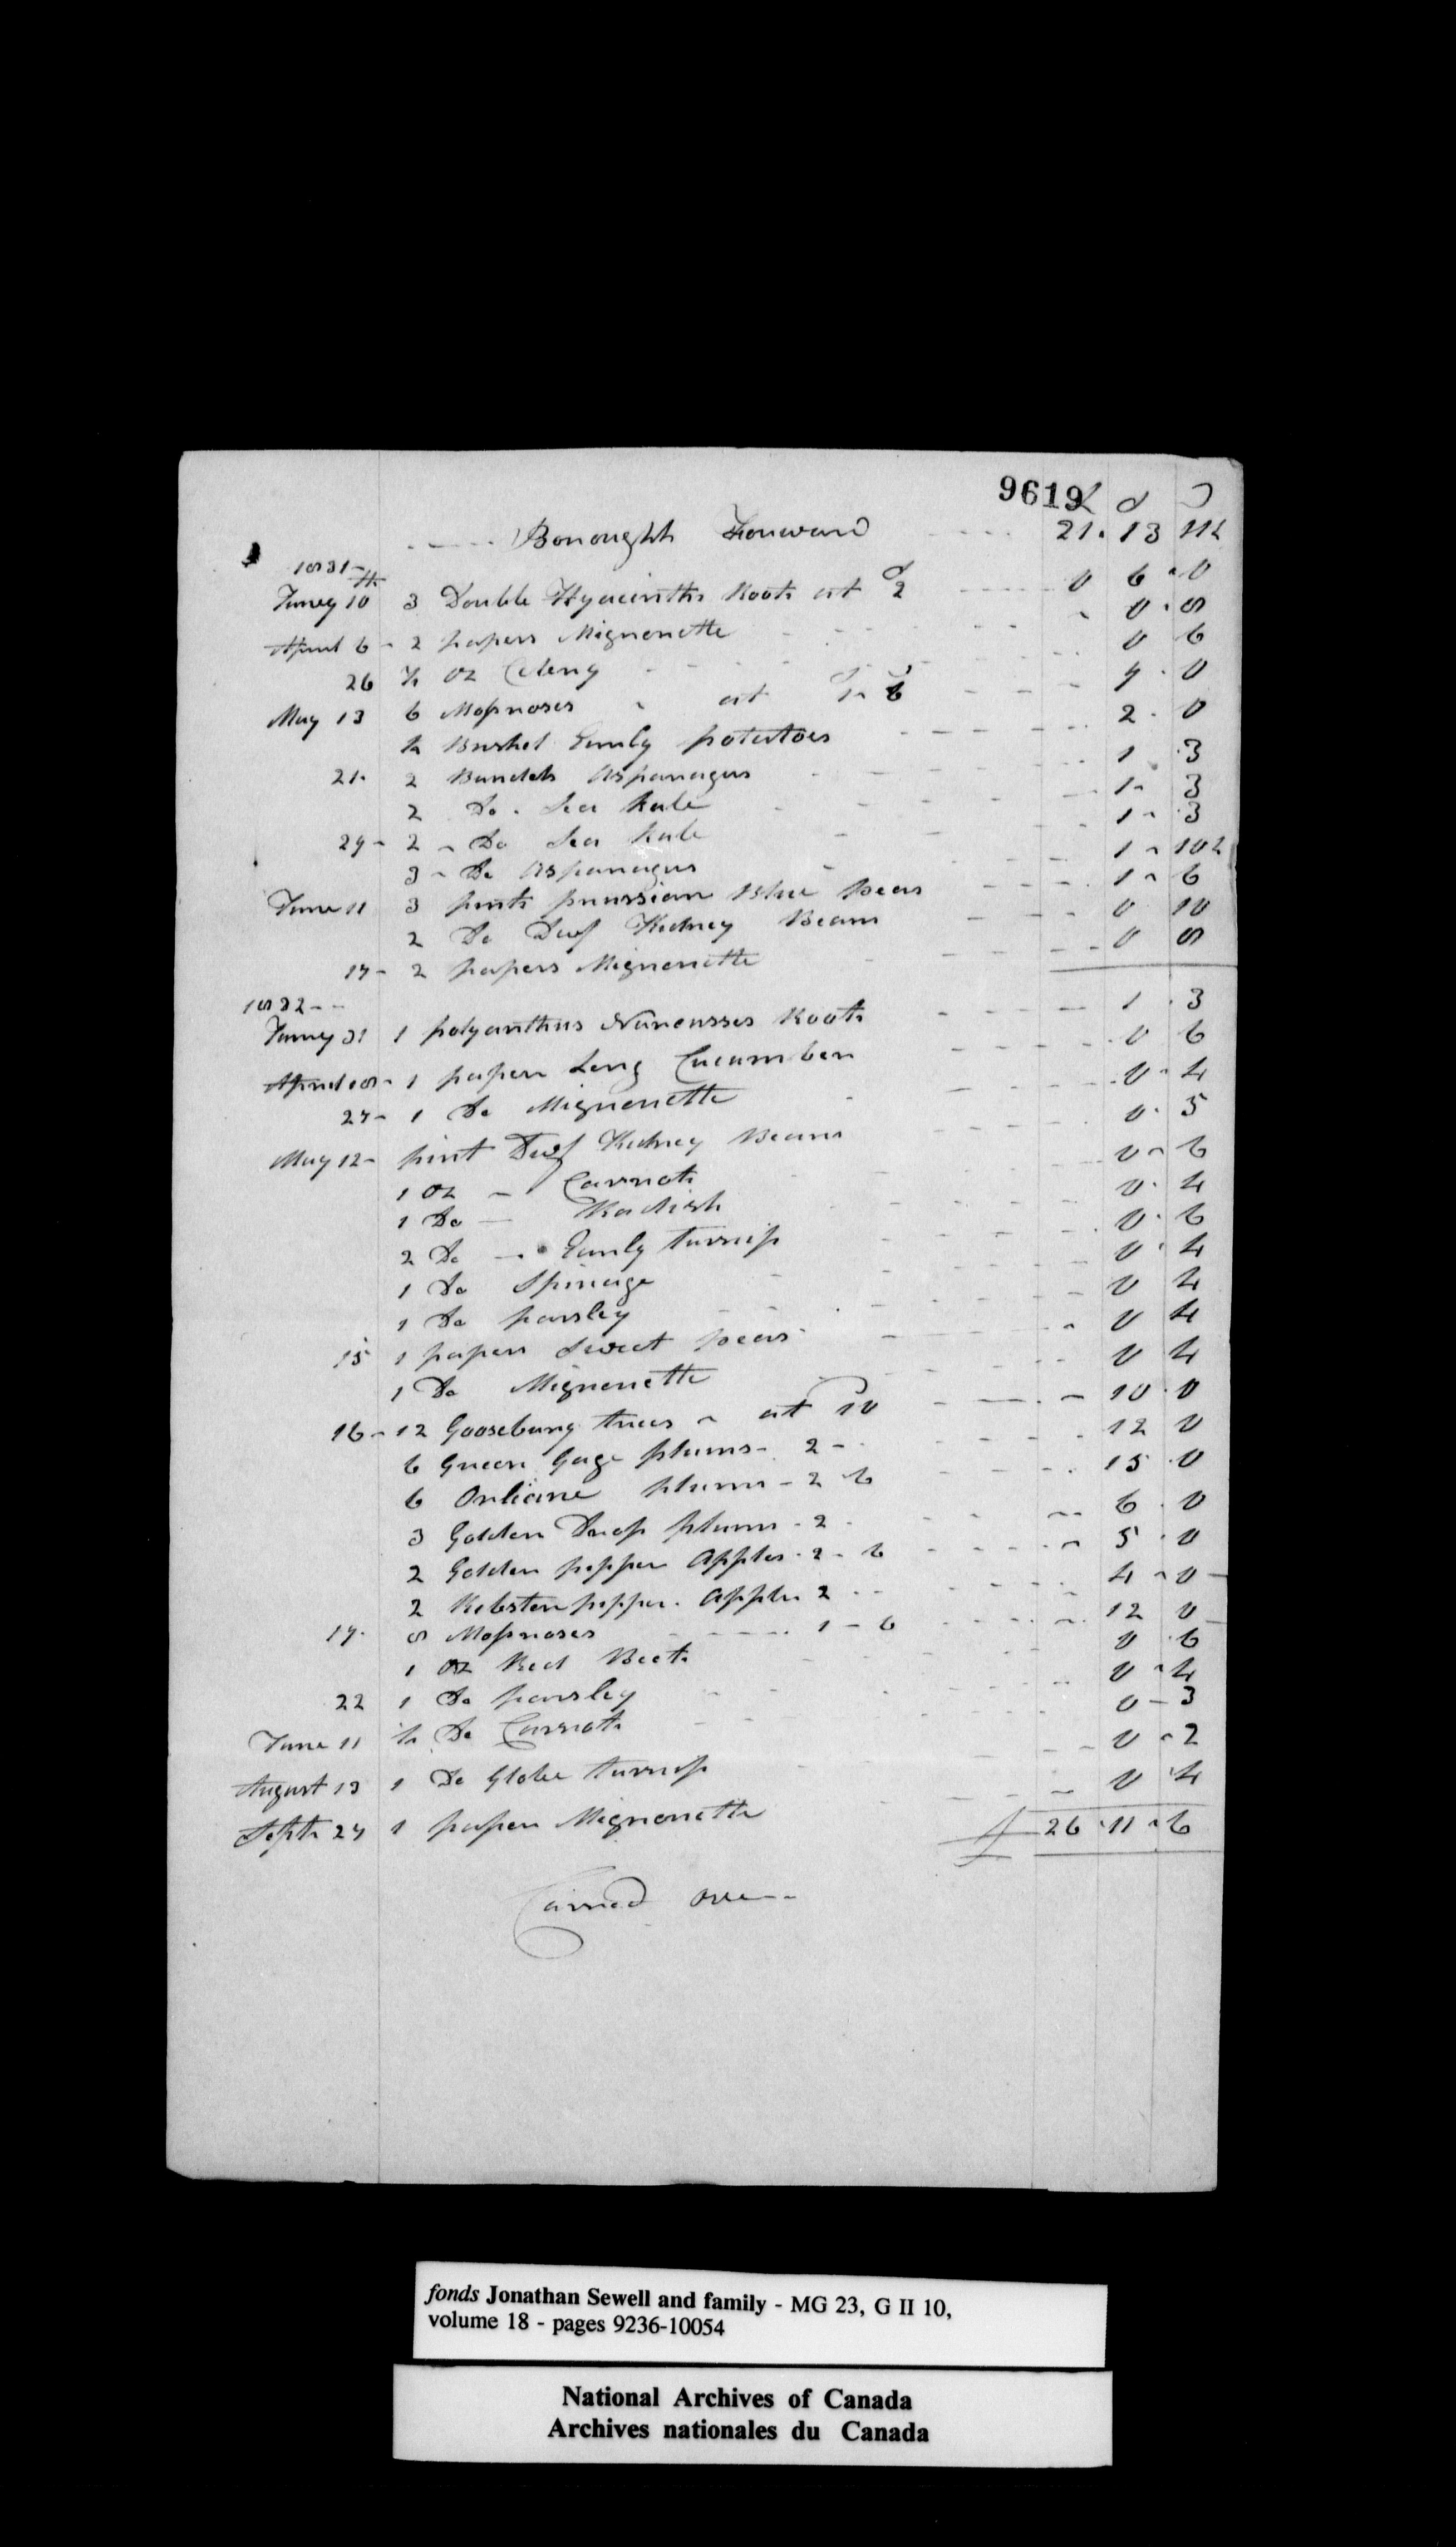 9619
L S D
Borought Forward 21. 13 11½
1831 -
Janry 10th 3 Double Hyacinths Roots at 2s 0 6 - 0
April 6 - 2 papers Mignonette 0 . 8
26 ½ oz Celery 0 6
May 13 6 Moproses at 1s - 6d 9 . 0
½ Bushel Early potatoes 2 . 0
21 - 2 Bundels Asparagus 1 . 3
2 Do . Sea Kale 1 - 3
29 - 2 - Do Sea Kale 1 - 3
3 - Do Asparagus 1 - 10½
June 11 3 pints prussian Blue peas 1 - 6
2 Do Dwf Kidney Beans 0 10
17 - 2 papers Mignonette 0 8
1832 - -
Janry 31 1 polyanthus Narcusses Roots 1 . 3
April 28 - 1 paper Long Cucumber 0 6
27 - 1 Do Mignonette 0 - 4
May 12 - pint Dwf Kidney Beans 0 . 5
1 oz - Carrots 0 - 6
1 Do - Radish 0 . 4
2 Do - Early turnip 0 . 6
1 Do Spinage 0 . 4
1 Do parsley 0 4
15 1 paper Sweet peas 0 4
1 Do Mignonette 0 4
16 - 12 Goosebury trees - at 10 10 . 0
6 Green Gage plums - 2 - 12 0
6 Orliane plums - 2 - 6 15 . 0
3 Golden Drop plums - 2 - 6 . 0
2 Golden peppen Apples - 2 - 6 5 . 0
2 Rebston peppen . Apples 2 - - 4 - 0 -
17 - 8 Moproses 1 - 6 12 0 -
1 oz Red Beet 0 . 6
22 1 Do parsley 0 - 4
June 11 ½ Do Carrots 0 - 3
August 13 1 Do Globe turnip 0 - 2
Septr 27 1 paper Mignonette 0 . 4
£ 26 . 11 - 6
Carried over - -
fonds Jonathan Sewell and family - MG 23, G II 10,
volume 18 - pages 9236-10054
National Archives of Canada
Archives nationales du Canada